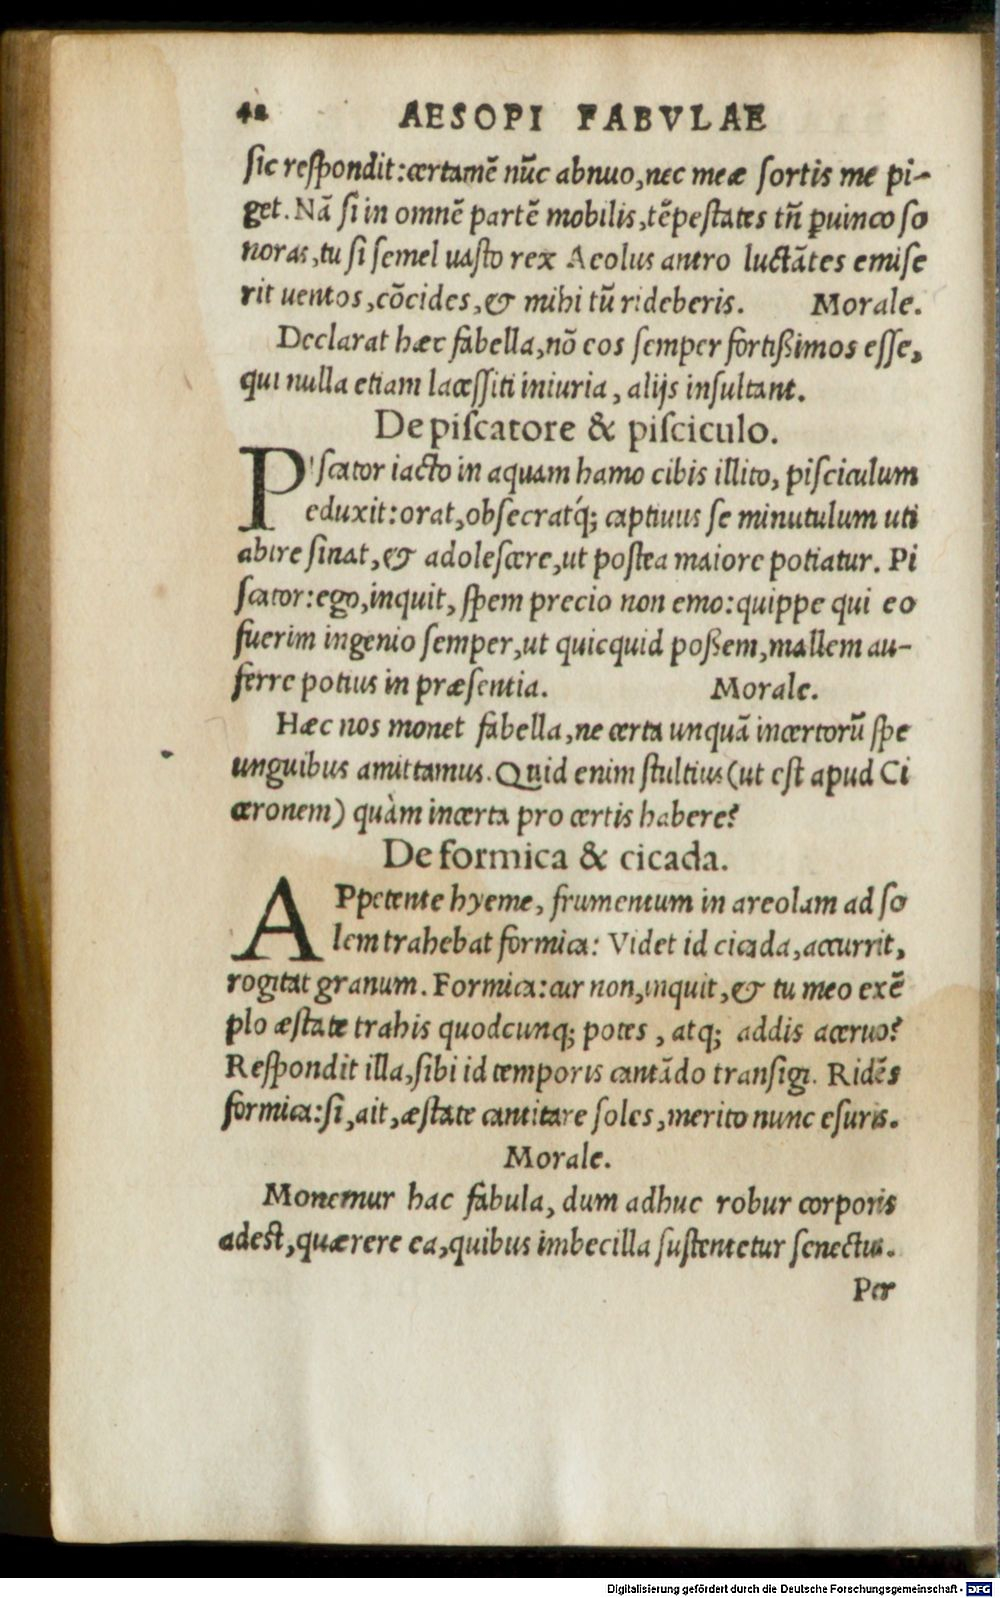 42 AESOPI FABVLAE
sic respondit: certamē nūc abnuo, nec meæ sortis me pi-
get. Nā si in omnē partē mobilis, tēpestates tñ ꝑuinco so
noras, tu si semel uasto rex Aeolus antro luctātes emise
rit uentos, cōcides, & mihi tū rideberis. Morale.
Declarat hæc fabella, nō eos semper fortißimos esse,
qui nulla etiam lacessiti iniuria, alijs insultant.
De piscatore & pisciculo.
PIscator iacto in aquam hamo cibis illito, pisciculum
eduxit: orat, obsecratq́; captiuus se minutulum uti
abire sinat, & adolescere, ut postea maiore potiatur. Pi
scator: ego, inquit, spem precio non emo: quippe qui eo
fuerim ingenio semper, ut quicquid poßem, mallem au-
ferre potius in præsentia. Morale.
Hæc nos monet fabella, ne certa unquā incertorū spe
unguibus amittamus. Quid enim stultius (ut est apud Ci
ceronem) quàm incerta pro certis habere?
De formica & cicada.
APpetente hyeme, frumentum in areolam ad so
lem trahebat formica: Videt id cicada, accurrit,
rogitat granum. Formica: cur non, inquit, & tu meo exē
plo æstate trahis quodcunq; potes, atq; addis aceruo?
Respondit illa, sibi id temporis cantādo transigi. Ridēs
formica: si, ait, æstate cantitare soles, merito nunc esuris.
Morale.
Monemur hac fabula, dum adhuc robur corporis
adest, quærere ea, quibus imbecilla sustentetur senectus.
Per
Digitalisierung gefördert durch die Deutsche Forschungsgemeinschaft - DFG